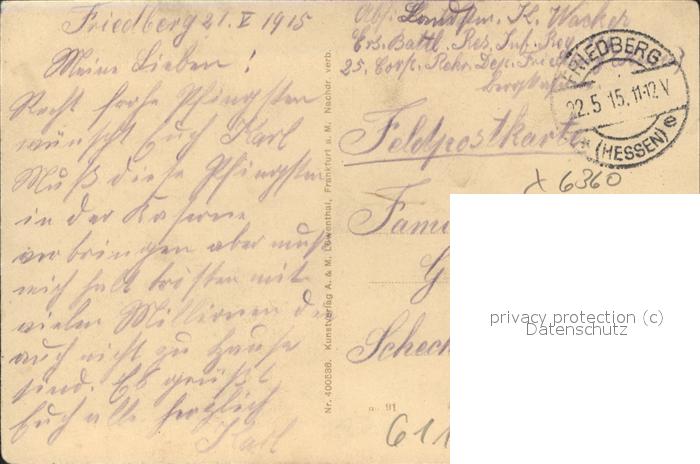 Friedberg 21. V 1915
Meine Lieben!
Recht frohe Pfingsten
wünscht Euch Karl
Muß diese Pfingsten
in der Kaserne
verbringen aber muß
mich halt trösten mit
vielen Millionen die
auch nicht zu Hause
sind. Es grüßt
Euch alle herzlich
Karl
Nr. 400836. Kunstverlag A. & M. Löwenthal, Frankfurt a. M. Nachdr. verb.
Abs. Landstm. K. Wacker
Ers. Battl. Res. Inf. Reg
25. Corp. Rekr. Dep.
FRIEDBERG
22.5.15.11-12V
(HESSEN)
Feldpostkarte
6360
Fam
G
Schec
91
611
privacy protection (c)
Datenschutz